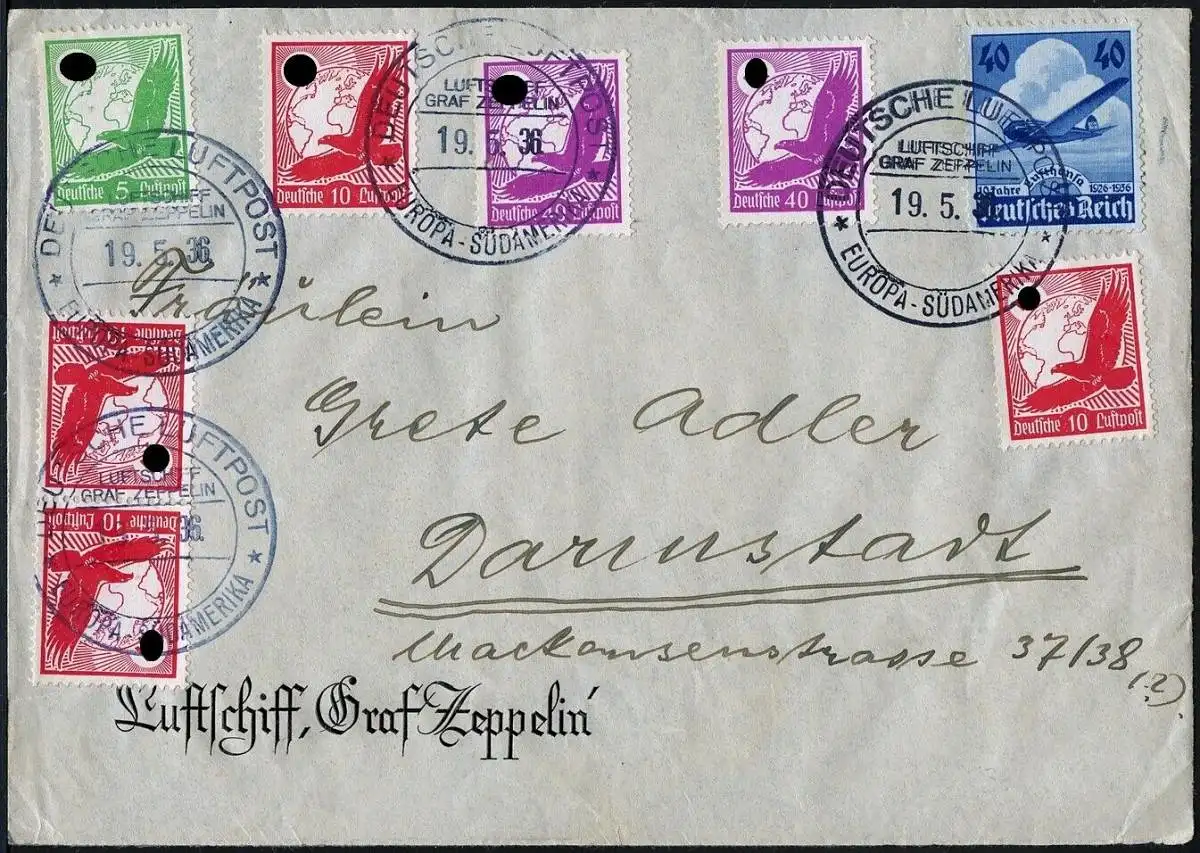 5
Deutsche Luftpost
10
Deutsche Luftpost
40
Deutsche Luftpost
40
Deutsche Luftpost
40 40
10 Jahre Lufthansa 1926-1936
Deutsches Reich
DEUTSCHE LUFTPOST
LUFTSCHIFF
GRAF ZEPPELIN
19. 5. 36.
EUROPA-SÜDAMERIKA
DEUTSCHE LUFTPOST
LUFTSCHIFF
GRAF ZEPPELIN
19. 5. 36.
EUROPA-SÜDAMERIKA
DEUTSCHE LUFTPOST
LUFTSCHIFF
GRAF ZEPPELIN
19. 5. 36.
EUROPA-SÜDAMERIKA
Deutsche 10 Luftpost
Fräulein
Grete Adler
Darmstadt
Mackensenstrasse 37/38
(?).
Deutsche 10 Luftpost
DEUTSCHE LUFTPOST
LUFTSCHIFF
GRAF ZEPPELIN
36.
EUROPA-SÜDAMERIKA
Deutsche 10 Luftpost
Luftschiff, Graf Zeppelin'